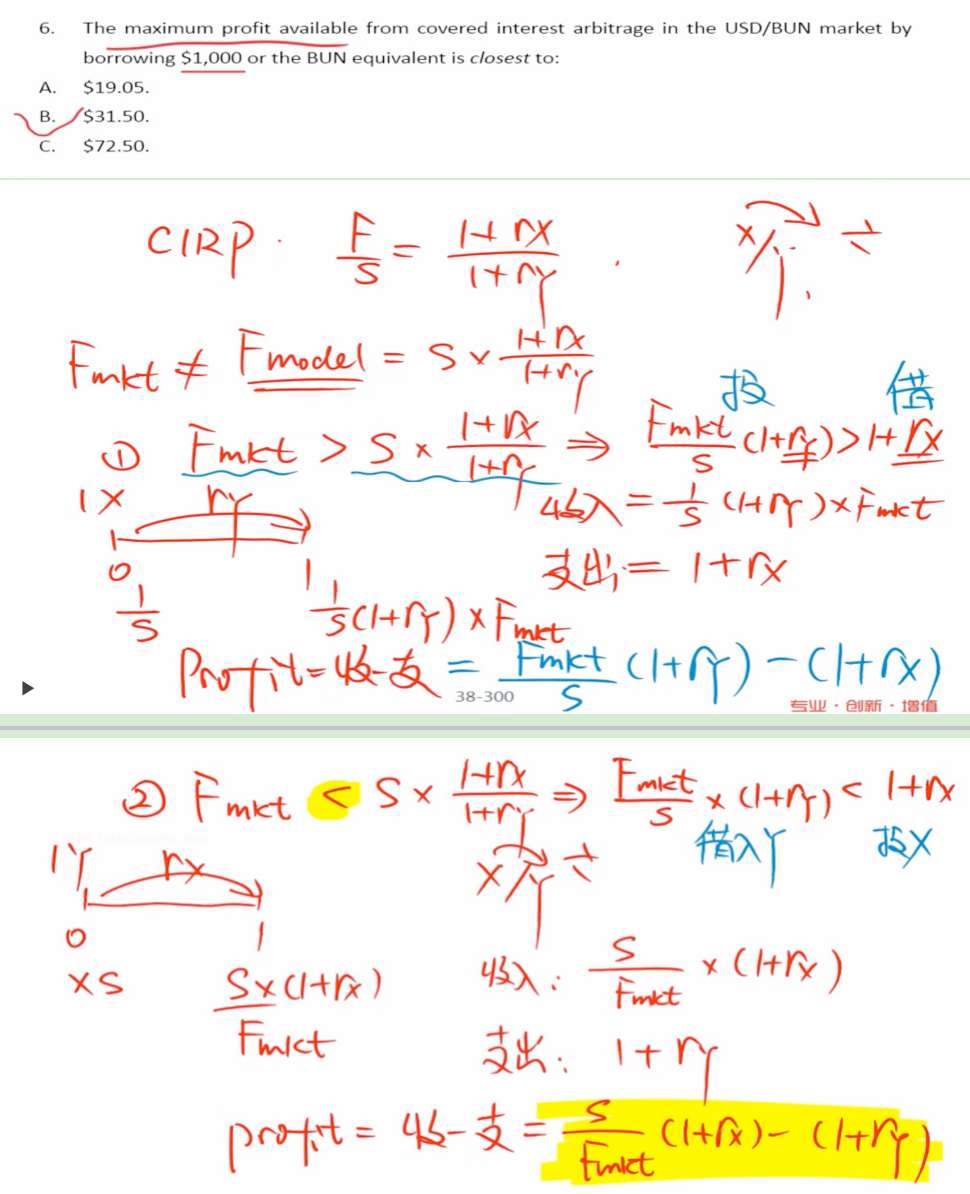 6. The maximum profit available from covered interest arbitrage in the USD/BUN market by
borrowing $1,000 or the BUN equivalent is closest to:
A. $19.05.
B. $31.50.
C. $72.50.
CIRP. F/S = (1+rx)/(1+ry) . x/y ÷
Fmkt ≠ Fmodel = S × (1+rx)/(1+ry)
投 借
① Fmkt > S × (1+rx)/(1+ry) ⇒ Fmkt/S (1+ry) > 1+rx
1X ry 收入 = 1/S (1+ry) × Fmkt
0 1 支出 = 1+rx
1/S 1/S (1+ry) × Fmkt
Profit = 收-支 = Fmkt/S (1+ry) - (1+rx)
38-300
专业·创新·增值
② Fmkt < S × (1+rx)/(1+ry) ⇒ Fmkt/S × (1+ry) < 1+rx
1Y rx x/y ÷ 借入Y 投X
0 1
×S S×(1+rx)/Fmkt 收入: S/Fmkt × (1+rx)
支出: 1+ry
profit = 收-支 = S/Fmkt (1+rx) - (1+ry)